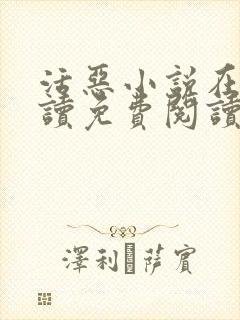 活惡小說在
讀免費閱讀
澤利 萨賓